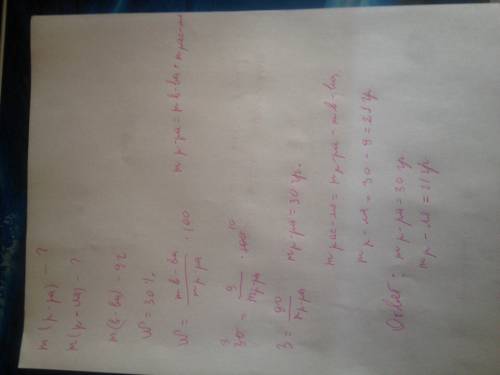 m(р-ра) - ?
m(р-ля) - ?
m(в-ва) - 9г
W = 30%
W = m в-ва / m р-ра · 100
m р-ра = m в-ва + m рас-ля
30 = 9 / m р-ра · 100
3 = 90 / m р-ра
m р-ра = 30 гр.
m рас-ля = m р-ра - m в-ва
m р-ля = 30 - 9 = 21 гр
Ответ: m р-ра = 30 гр
m р-ля = 21 гр